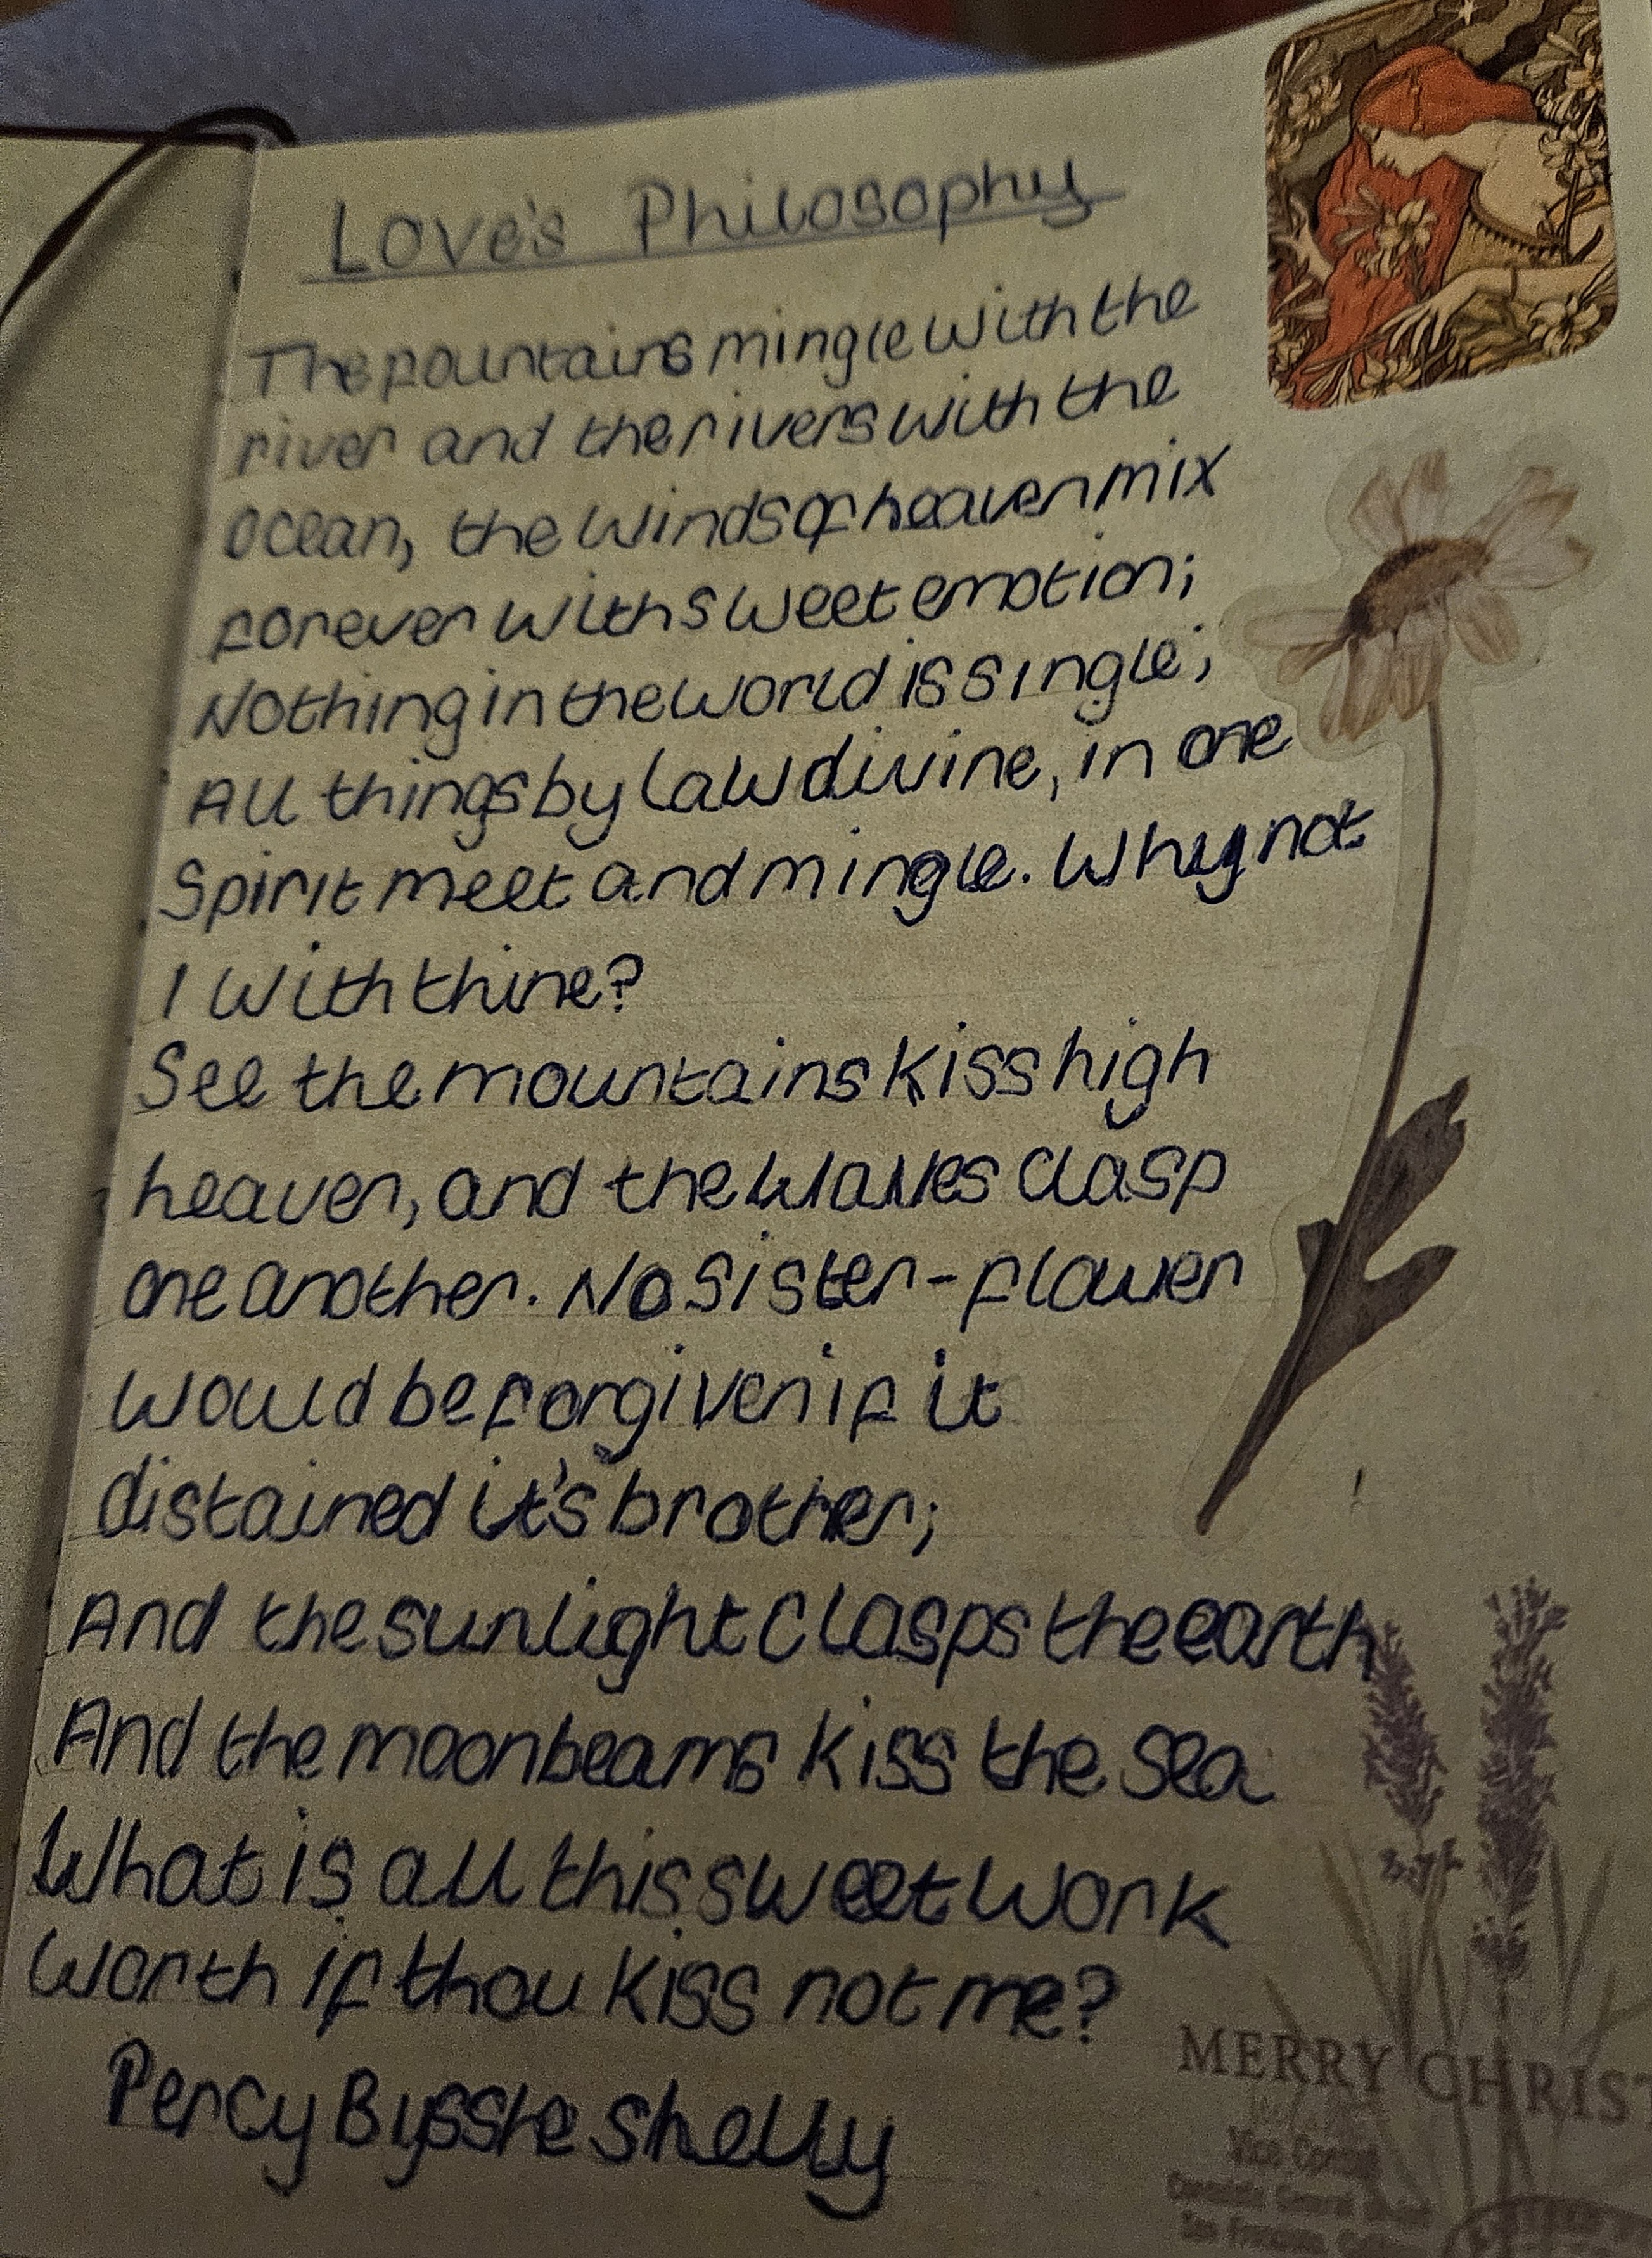 Love's Philosophy
The fountains mingle with the
river and the rivers with the
ocean, the winds of heaven mix
forever with sweet emotion;
Nothing in the world is single;
All things by law divine, in one
Spirit meet and mingle. Why not
I with thine?
See the mountains kiss high
heaven, and the waves clasp
one another. No sister-flower
would be forgiven if it
distained it's brother;
And the sunlight clasps the earth
And the moonbeams kiss the sea
What is all this sweet work
worth if thou kiss not me?
Percy Bysshe Shelly
MERRY CHRIST
Vice
General
San Francisco,